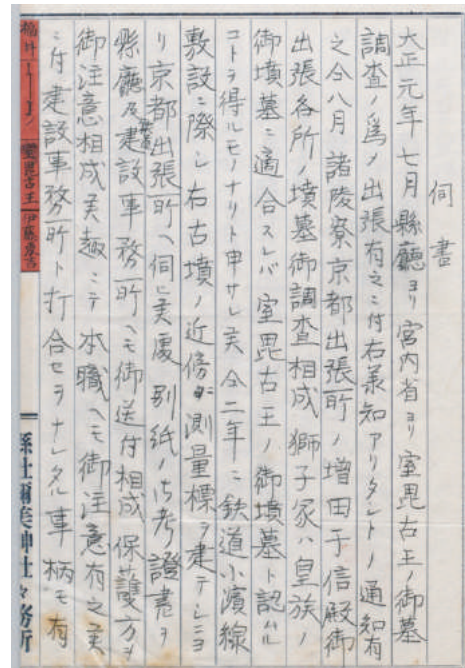 伺書
大正元年七月縣廳ヨリ宮内省ヨリ室毘古王ノ御墓
調査ノ爲メ出張有之ニ付右承知アリタシトノ通知有
之仝八月諸陵寮京都出張所ノ増田于信殿御
出張各所ノ墳墓御調査相成獅子冢ハ皇族ノ
御墳墓ニ適合スレバ室毘古王ノ御墳墓ト認ムル
コトヲ得ルモノナリト申サレ候仝二年ニ鉄道小濱線
敷設ニ際シ右古墳ノ近傍ニ測量標ヲ建テシニヨ
リ京都出張所ヘ伺ヒ候處別紙ノ考證書ヲ
縣廳及建設事務所ヘモ御送付相成保護方ヲ
御注意相成候趣ニテ本職ヘモ御注意有之候
ニ付建設事務所ト打合セヲナシタル事柄モ有
福井
室毘古王
伊藤
彌美神社々務所